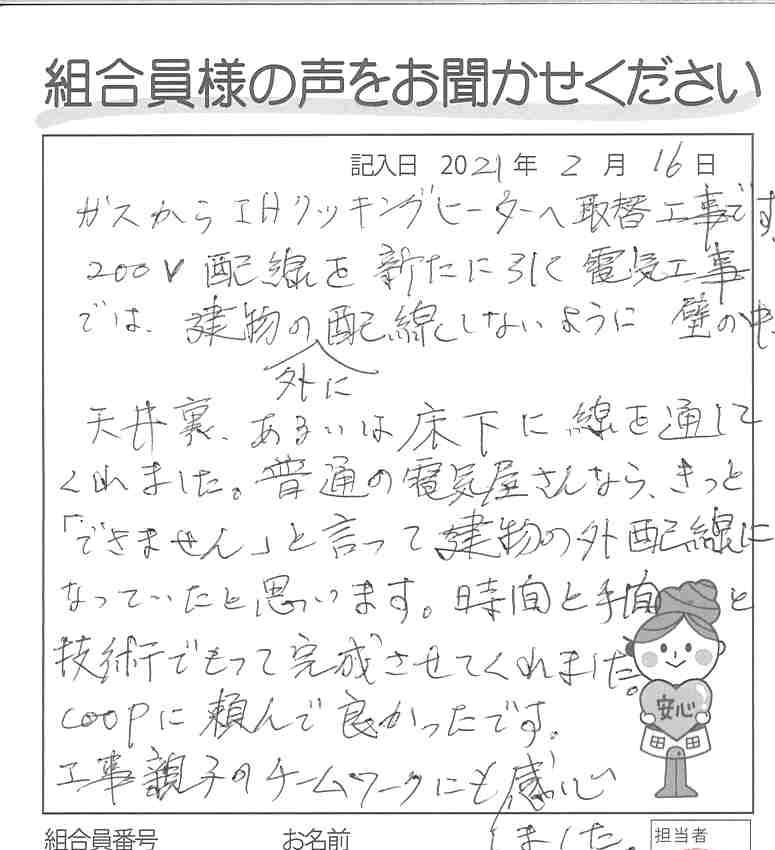 組合員様の声をお聞かせください
記入日 2021年 2月 16日
ガスからIHクッキングヒーターへ取替工事です。
200V 配線を新たに引く電気工事
では、建物の配線しないように 壁の中、
外に
天井裏、あるいは床下に 線を通して
くれました。普通の電気屋さんなら、きっと
「できません」と言って建物の外配線に
なっていたと思います。時間と手間と
技術でもって完成させてくれました。
coopに頼んで良かったです。
工事親子のチームワークにも感心
しました。
安心
組合員番号 お名前 担当者